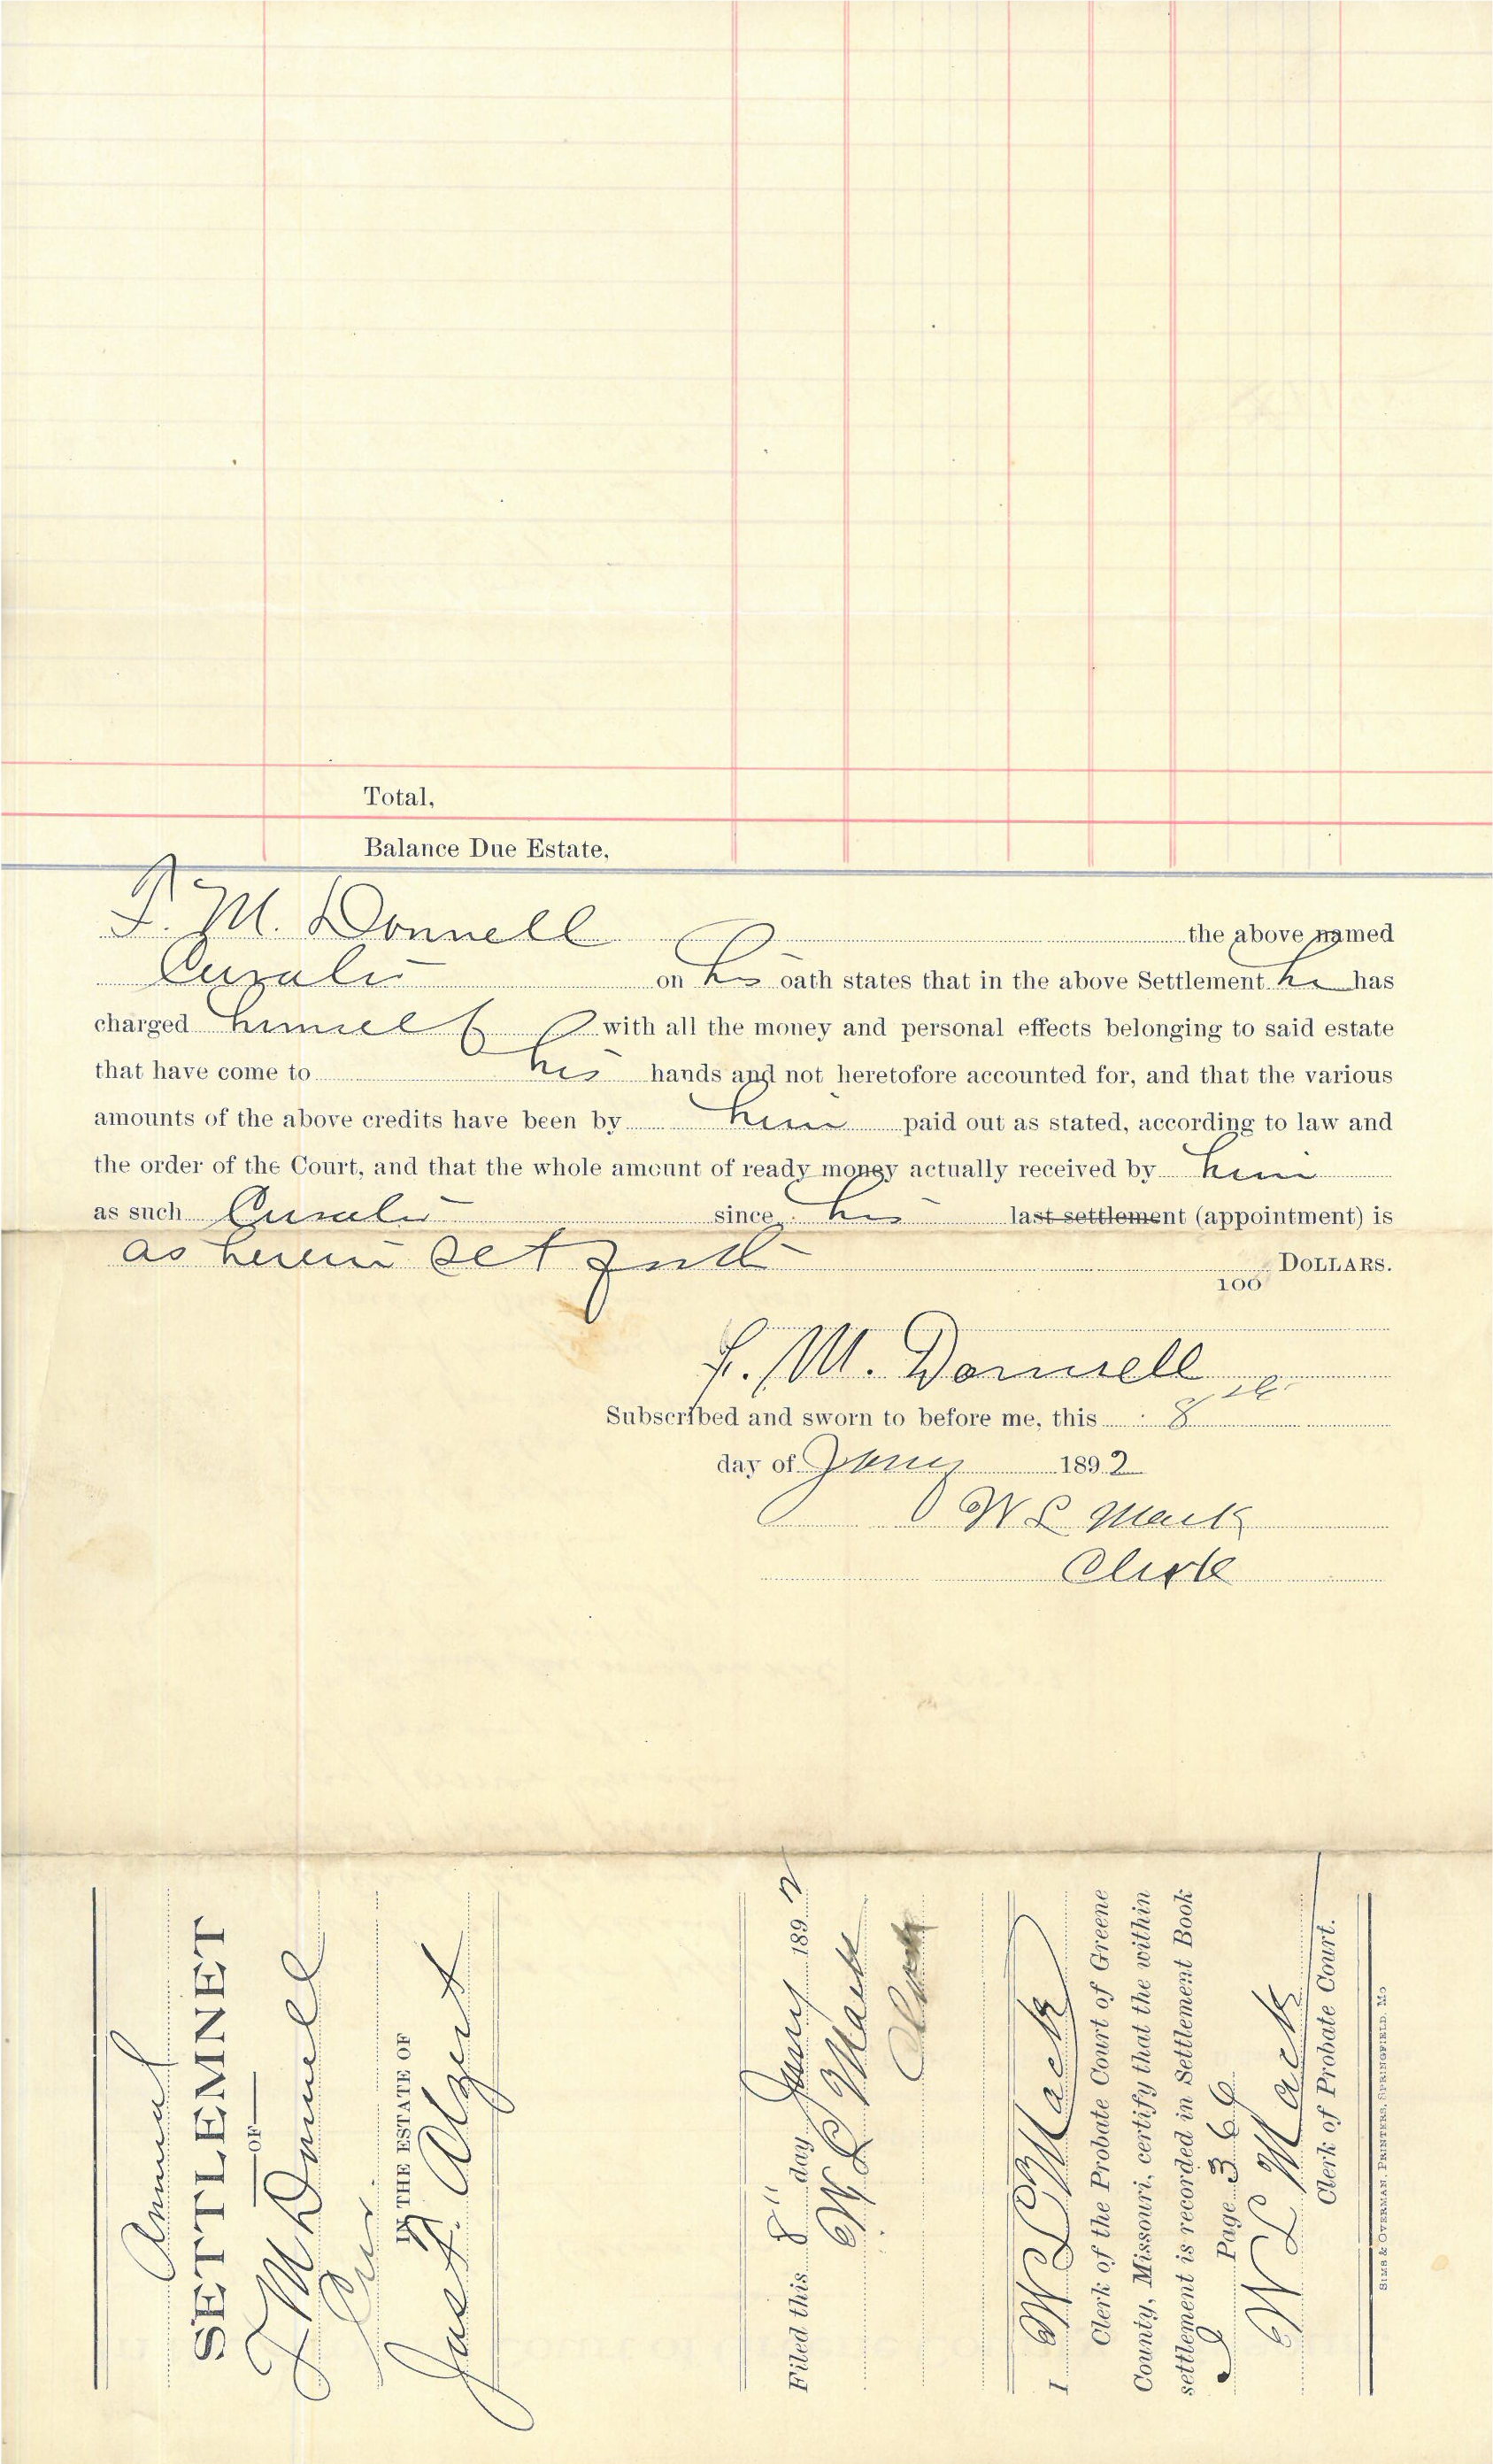 Total,
Balance Due Estate,
F. M. Donnell the above named
Curator on his oath states that in the above Settlement he has
charged himself with all the money and personal effects belonging to said estate
that have come to his hands and not heretofore accounted for, and that the various
amounts of the above credits have been by him paid out as stated, according to law and
the order of the Court, and that the whole amount of ready money actually received by him
as such Curator since his last settlement (appointment) is
as herein set forth DOLLARS.
100
F. M. Donnell
Subscribed and sworn to before me, this 8th
day of Jany 1892
W L Mack
Clerk
Annual
SETTLEMNET
OF
F M Donnell
Cur
IN THE ESTATE OF
Jas F.
Filed this 8" day Jany 1892
W L Mack
Clerk
I W L Mack
Clerk of the Probate Court of Greene
County, Missouri, certify that the within
settlement is recorded in Settlement Book
Page 366
W L Mack
Clerk of Probate Court.
SIMS & OVERMAN, PRINTERS, SPRINGFIELD, MO